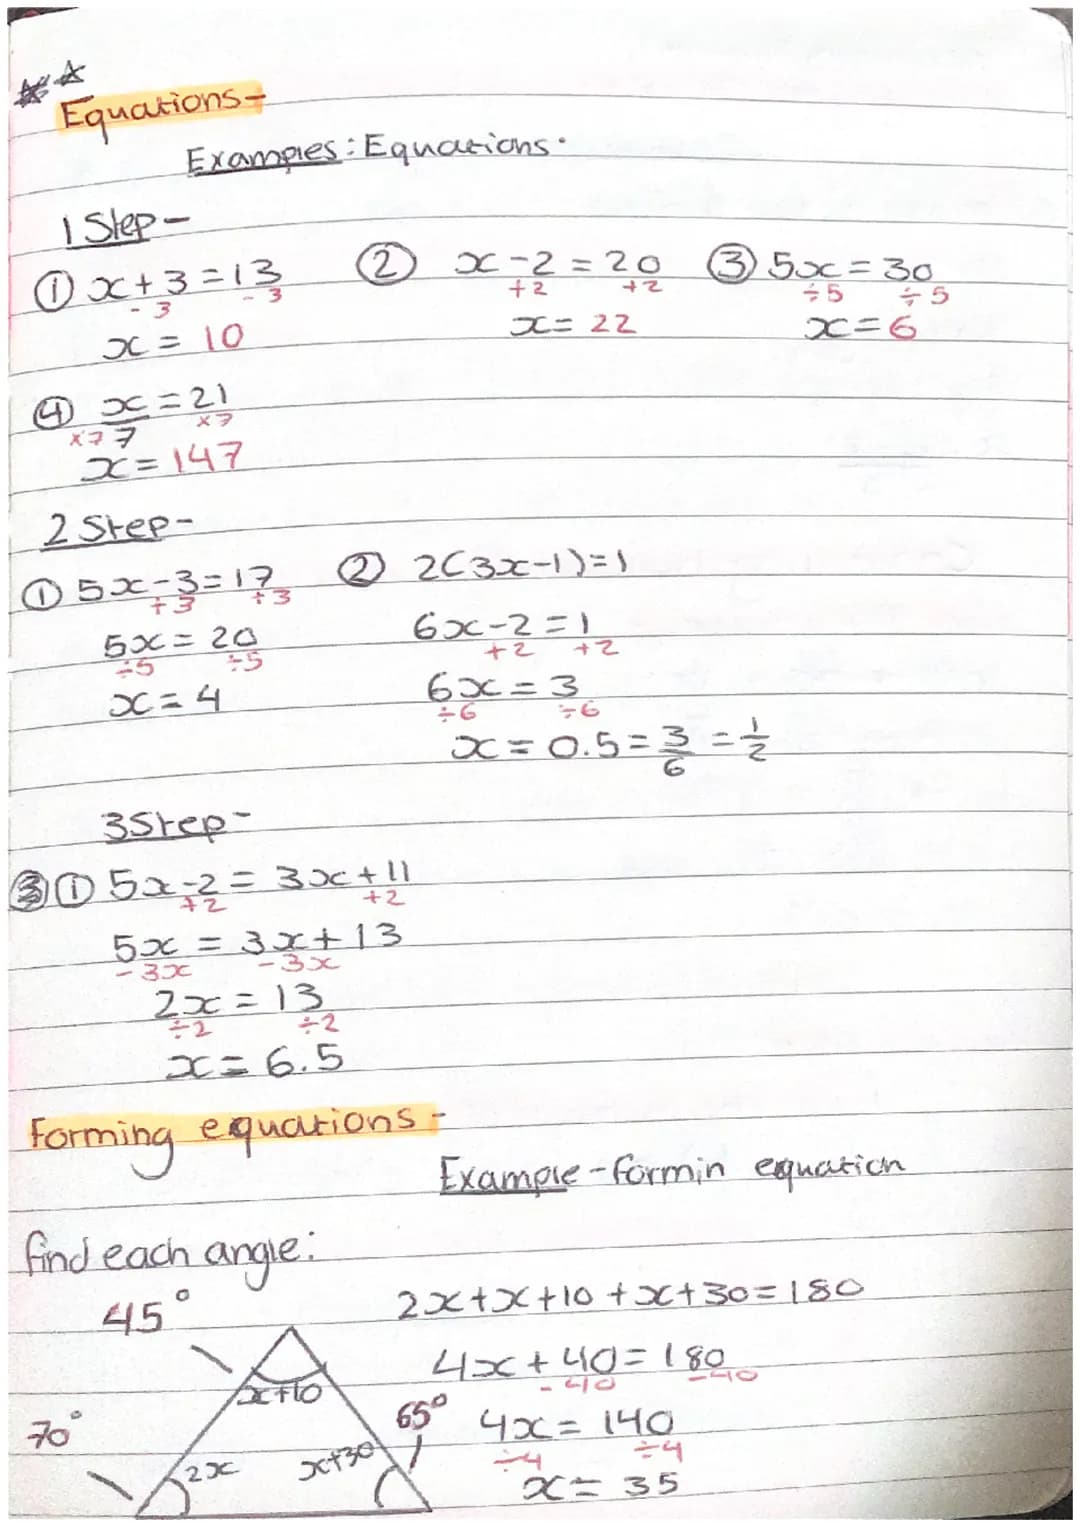 Equations-
Examples: Equations.
1 Step-
① x+3=13 ② x-2=20 ③ 5x=30
-3 -3 +2 +2 ÷5 ÷5
x=10 x=22 x=6
④ x/7=21
x7 x7
x=147
2 Step-
① 5x-3=17 ② 2(3x-1)=1
+3 +3
5x=20 6x-2=1
÷5 ÷5 +2 +2
x=4 6x=3
÷6 ÷6
x=0.5=3/6=1/2
3 Step-
① 5x-2=3x+11
+2 +2
5x=3x+13
-3x -3x
2x=13
÷2 ÷2
x=6.5
Forming equations-
Example-formin equation
find each angle:
45° 2x+x+10+x+30=180
4x+40=180
-40 -40
x+10
70° 65° 4x=140
÷4 ÷4
2x x+30 x=35